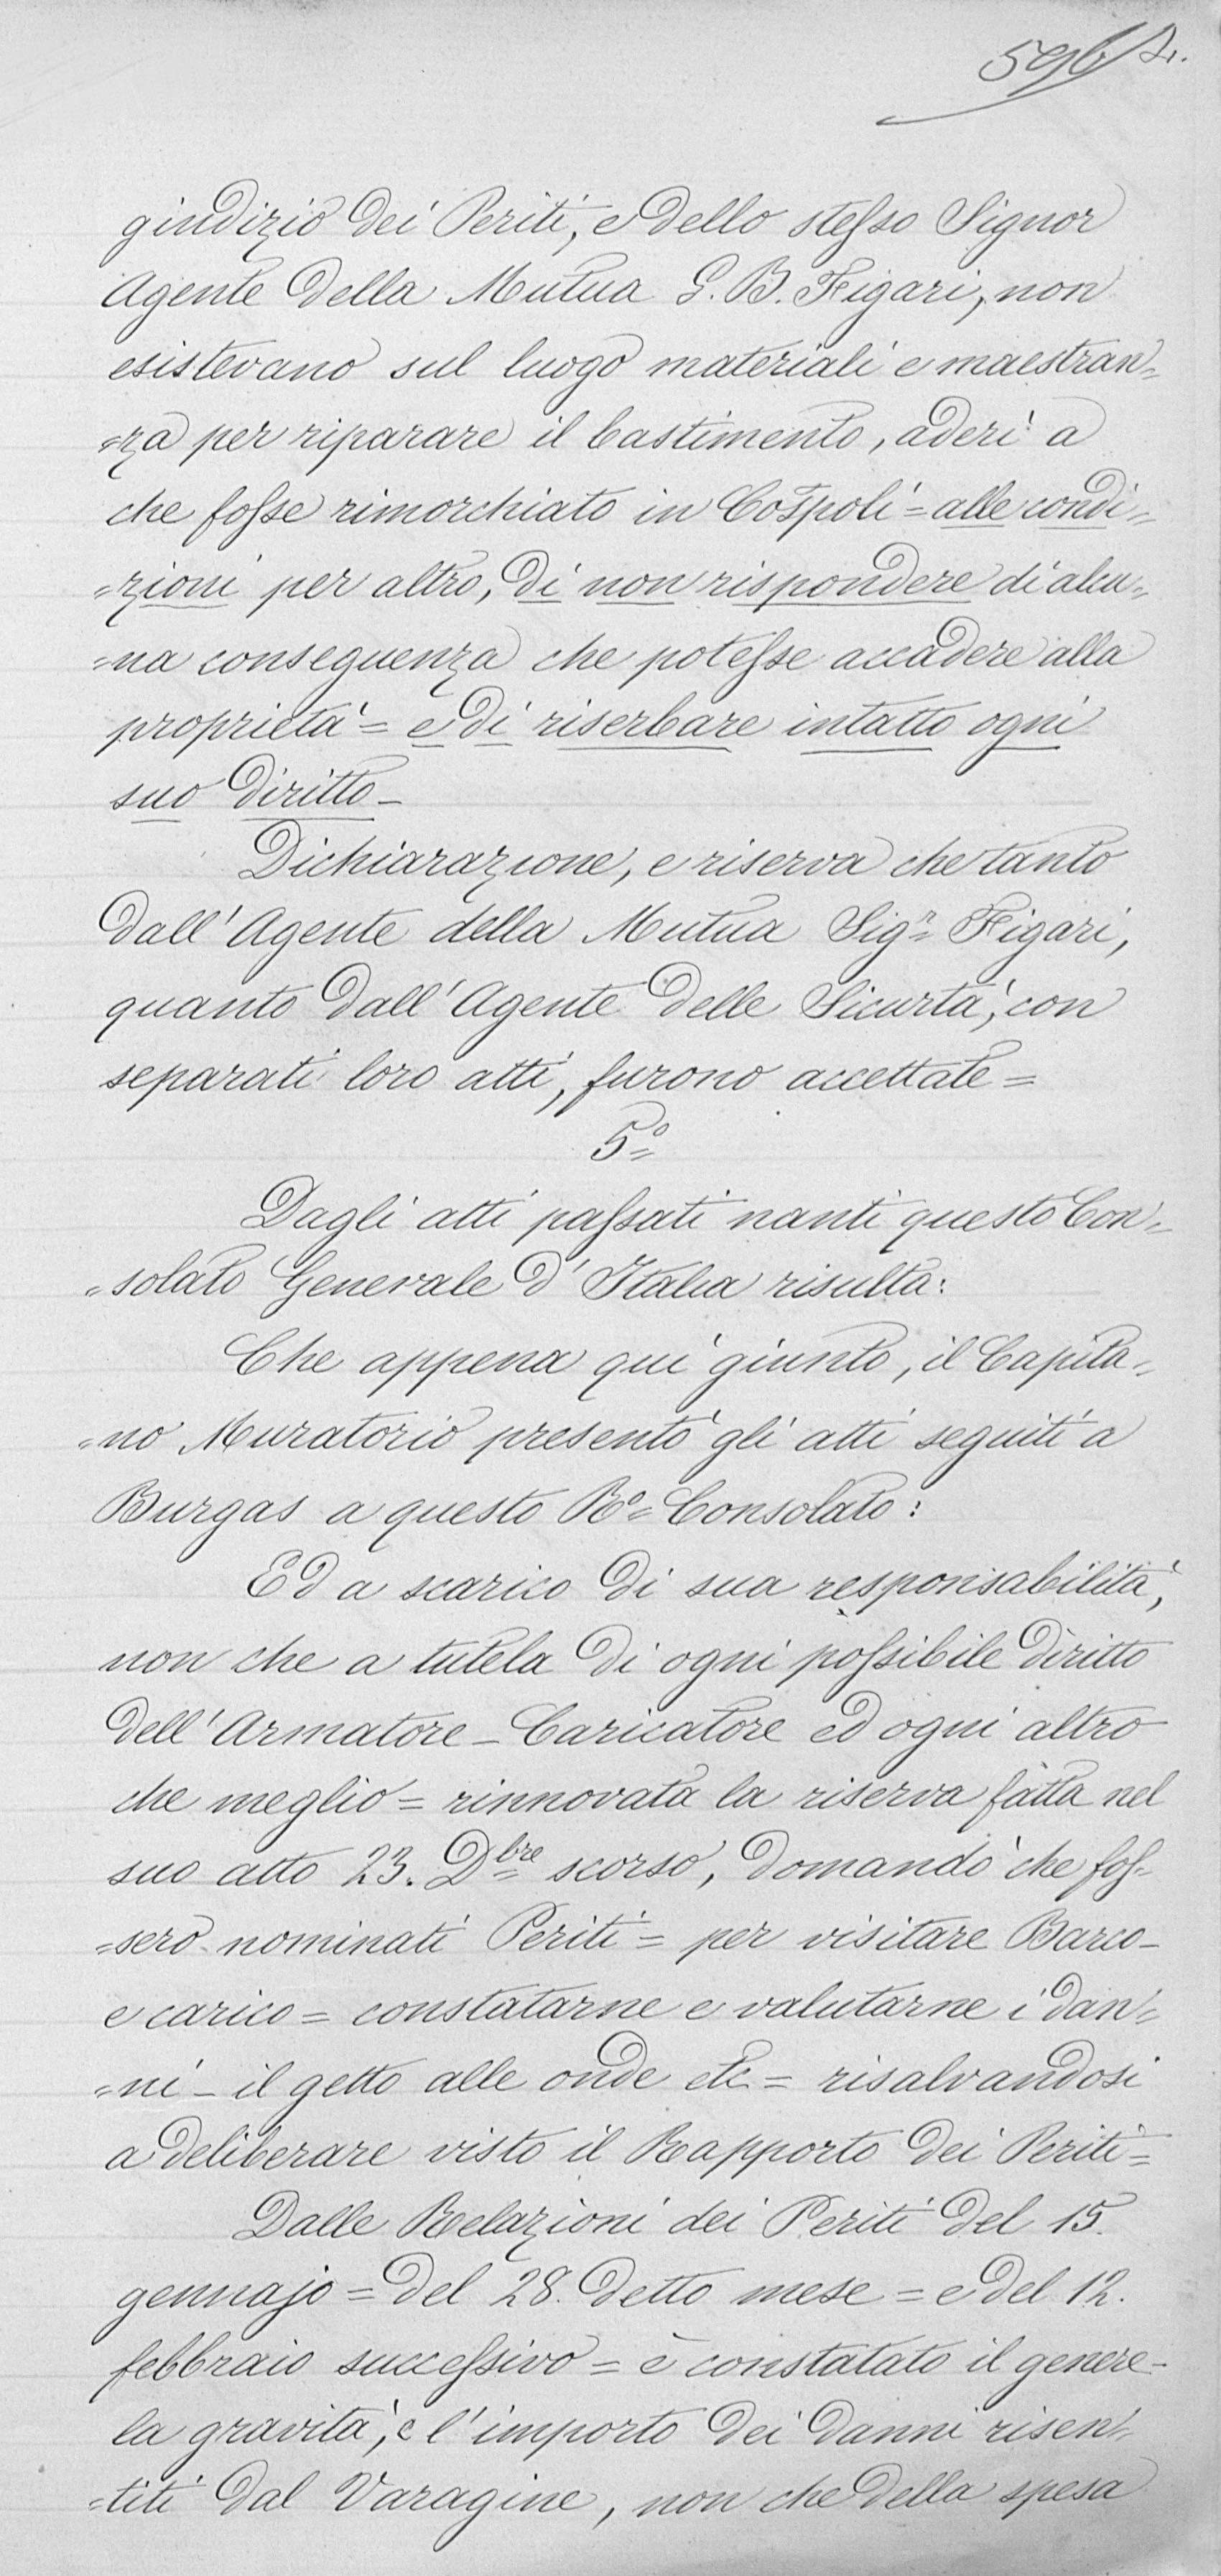 596/2.
giudizio dei Periti, e dello stesso Signor
Agente della Mutua G. B. Figari, non
esistevano sul luogo materiali e maestran=
=za per riparare il bastimento, aderì a
che fosse rimorchiato in Cospoli = alle condi=
=zioni per altro, di non rispondere di alcu=
=na conseguenza che potesse accadere alla
proprietà = e di riserbare intatto ogni
suo diritto –
Dichiarazione, e riserva che tanto
dall'Agente della Mutua Sigr= Figari,
quanto dall'Agente delle Sicurtà, con
separati loro atti, furono accettate =
5°=
Dagli atti passati nanti questo Con=
=solato Generale d'Italia risulta:
Che appena quì giunto, il Capita=
=no Muratorio presentò gli atti seguiti a
Burgas a questo R°= Consolato:
Ed a scarico di sua responsabilità,
non che a tutela di ogni possibile diritto
dell'Armatore – Caricatore ed ogni altro
che meglio = rinnovata la riserva fatta nel
suo atto 23. Dbre= scorso, domandò che fos=
=sero nominati Periti = per visitare Barco –
e carico = constatarne e valutarne i dan=
=ni – il getto alle onde etc = risalvandosi
a deliberare visto il Rapporto dei Periti =
Dalle Relazioni dei Periti del 15.
gennajo = del 28. detto mese = e del 12.
febbraio successivo = è constatato il genere –
la gravità, e l'importo dei danni risen=
=titi dal Varagine, non che della spesa